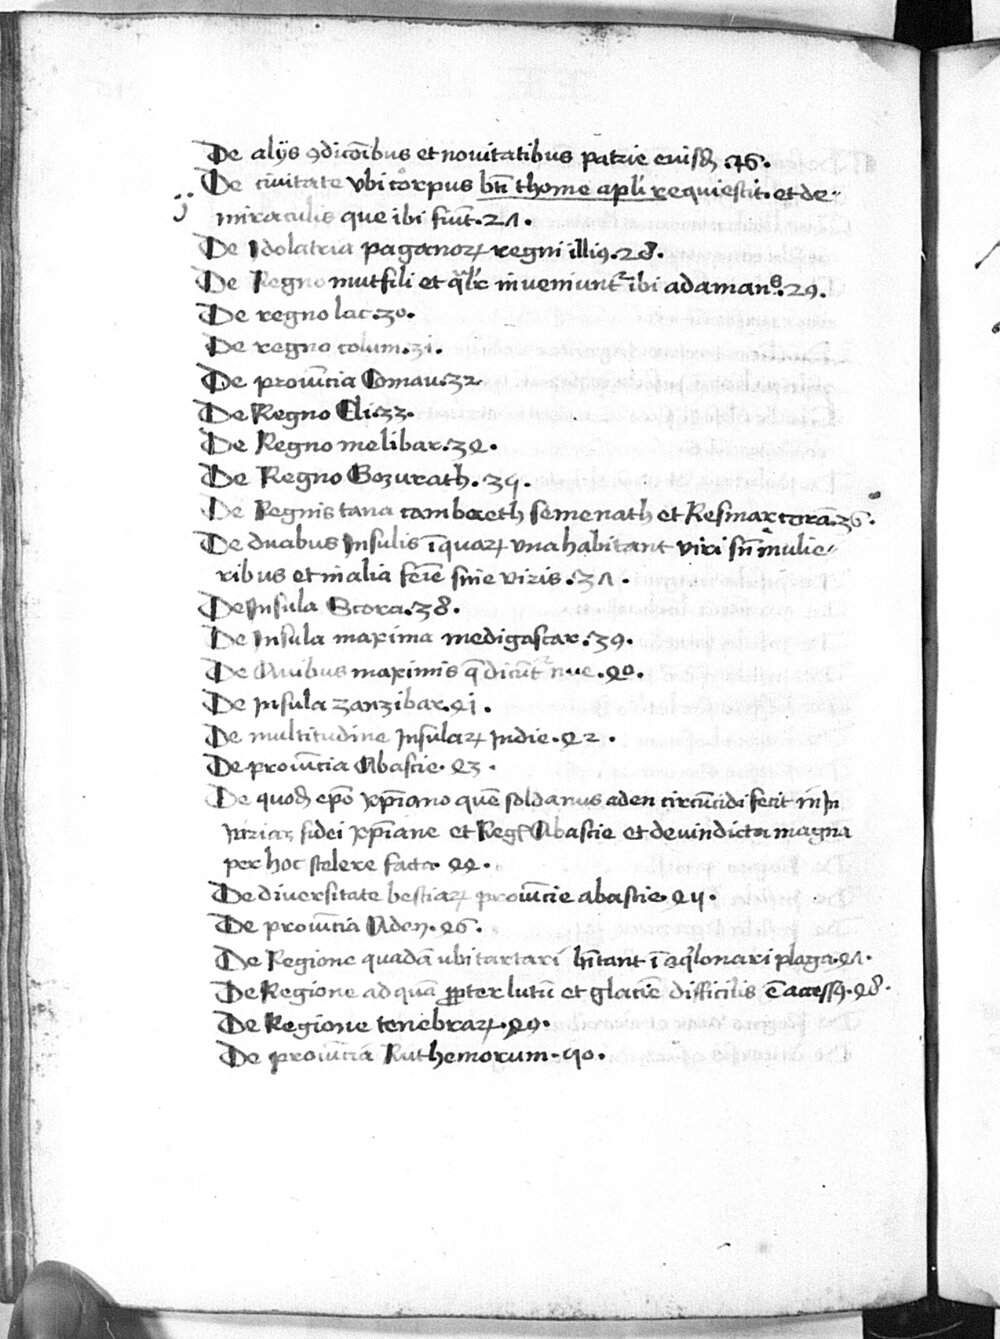 De alijs ꝯdicōibus et nouitatibus patrie euisdē .26.
De ciuitate vbi corpus bti thome apli requiescit. et de
miraculis que ibi fiūt .27.
De Idolatria paganoꝝ regni illiꝰ .28.
De Regno mutfili et qͣlr inueniunt̃ ibi adamanˢ .29.
De regno lac .30.
De regno colum .31.
De prouīcia Comau .32
De Regno Eli .33.
De Regno melibar .34.
De Regno Gozurath. 35.
De Regnis tana cambaeth semenath et Resmaxcorā .36.
De duabus Insulis ī quaꝝ vna habitant viri sn̄ mulie
ribus et in alia fem̄e sine viris .37.
De Insula Scora .38.
De Insula maxima medigascar .39.
De Auibus maximis q̄ dicūt̃ ruc .40.
De Insula zanzibar .41.
De multitudine Insulaꝝ Indie .42.
De prouīcia Abascie .43.
De quodā ep̄o xp̄iano quē soldanus aden circūcidi fecit in In
iuriaꝫ fidei xp̄iane et Rege Abascie et de vindicta magna
per hoc scelere facta .44.
De diuersitate bestiaꝝ prouīcie abascie .45.
De prouīcia Aden .46.
De Regione quadā ubi tartari hītant ī aqͥlonari plaga .47.
De Regione ad quā ꝓpter lutū et glaciē difficilis ē accessꝰ .48.
De Regione tenebraꝝ .49.
De prouīcia Ruthenorum .50.